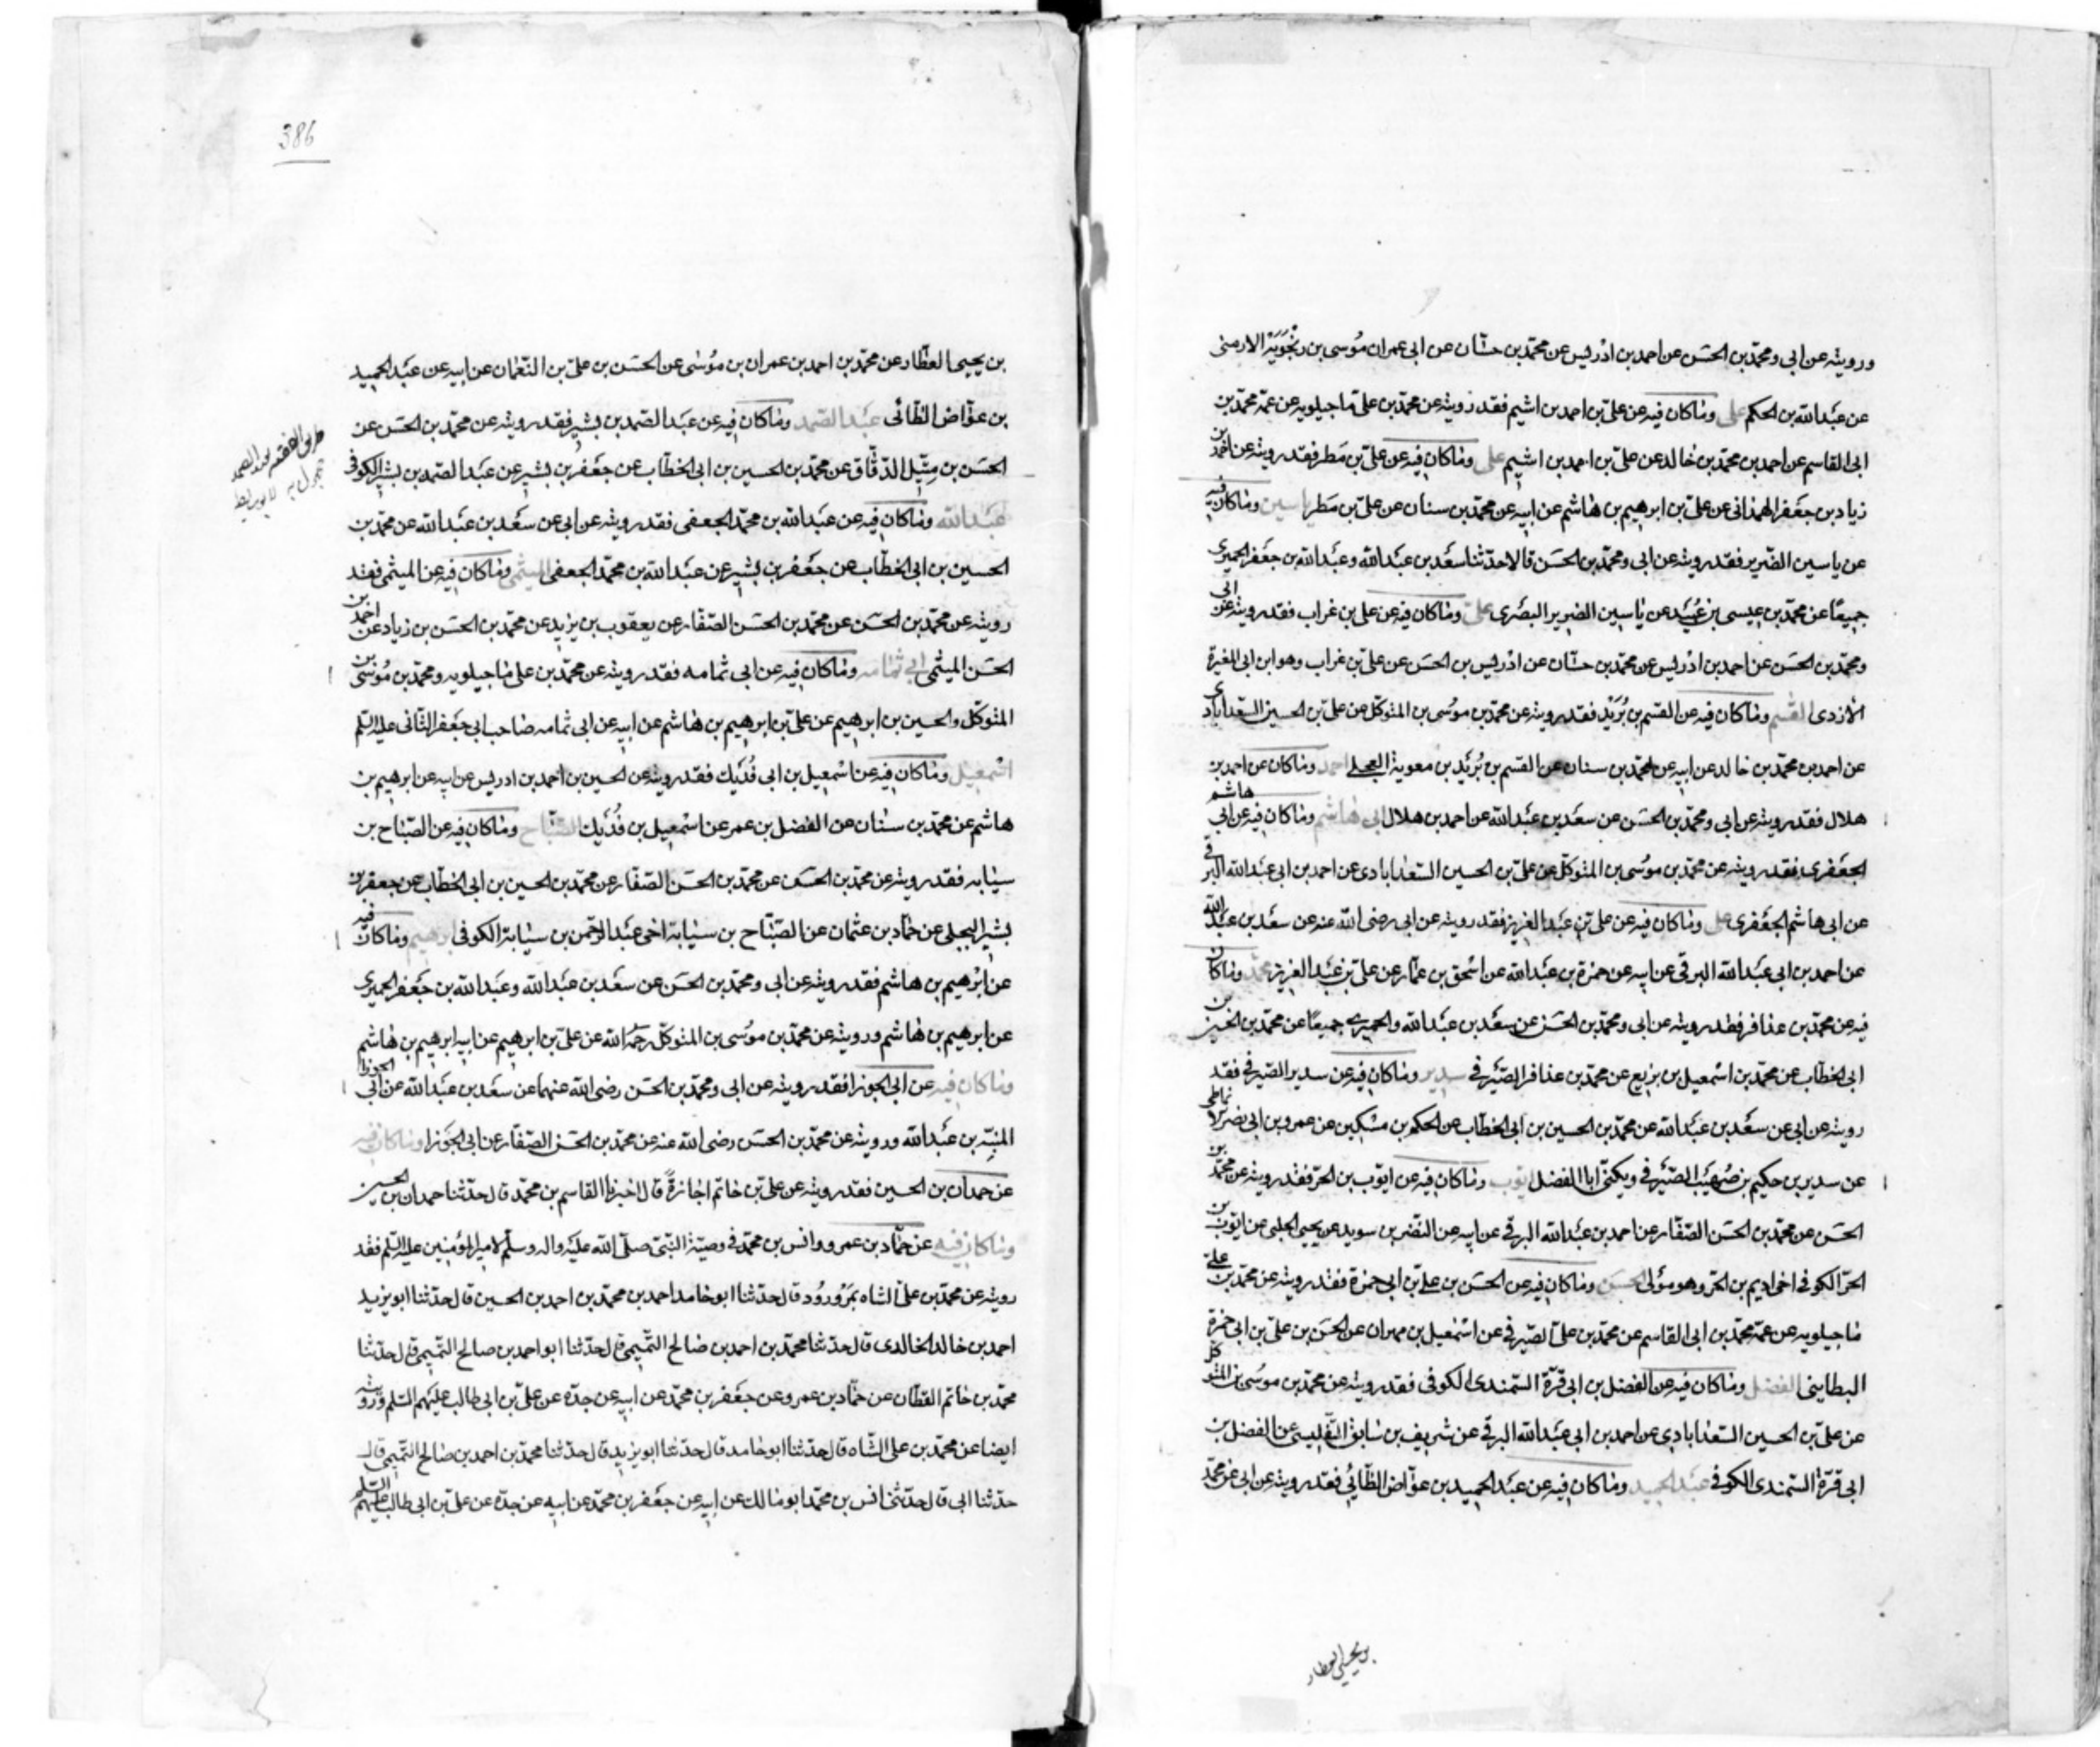 ورويته عن ابى ومحمد بن الحسن عن احمد بن ادريس عن محمد بن حسّان عن ابى عمران مُوسى بن رنجَوَيَه الارمنى
عن عبدالله بن الحكم على وماكان فيه عن علىّ بن احمد بن اشيم فقد رويته عن محمّد بن علىّ ماجيلويه عن عمّه محمّد بن
ابى القاسم عن احمد بن محمّد بن خالد عن علىّ بن احمد بن اشيم على وماكان فيه عن علىّ بن مَطر فقد رويته عن احمد بن
زياد بن جعفر الهمدانى عن علىّ بن ابرهيم بن هاشم عن ابيه عن محمّد بن سنان عن علىّ بن مَطر ياسين وماكان فيه
عن ياسين الضّرير فقد رويته عن ابى ومحمّد بن الحسَن قالا حدّثنا سَعد بن عبدالله وعبدالله بن جعَفر الحميرى
جميعًا عن محمّد بن عيسى بن عُبَيد عن ياسين الضرير البصَرى علىّ وماكان فيه عن على بن غراب فقد رويته عن ابى
ومحمّد بن الحسَن عن احمد بن ادْريس عن محمّد بن حسّان عن ادْريس بن الحسَن عن علىّ بن غراب وهو ابن ابى المغيرة
الأزدى القسم وماكان فيه عن القسم بن بُرَيْد فقد رويته عن محمّد بن موُسى بن المتوكّل عن علىّ بن الحسين السّعدابادى
عن احمد بن محمّد بن خالد عن ابيه عن محمّد بن سنان عن القسم بن بُرَيد بن معوية العجلى احمد وماكان عن احمد بن
هلال فقد رويته عن ابى ومحمّد بن الحسَن عن سعَد بن عبدالله عن احمد بن هلال ابى هاشم وماكان فيه عن ابى هاشم
الجعَفرى فقد رويته عن محمّد بن موُسى بن المتوكّل عن علىّ بن الحسين السّعدابادى عن احمد بن ابى عبَدالله البرقى
عن ابى هاشم الجعَفرى على وماكان فيه عن علىّ بن عبَدالعزيز فقد رويته عن ابى رضى الله عنه عن سعَد بن عبدالله
عن احمد بن ابى عبَدالله البرقى عن ابيه عن حمزة بن عبَدالله عن اسْحق بن عمّار عن علىّ بن عبَدالعزيز محمّد وماكان
فيه عن محمّد بن عذافر فقد رويته عن ابى ومحمّد بن الحسَن عن سعَد بن عبدالله والحميرى جميعًا عن محمّد بن الحسين بن
ابى الخطّاب عن محمّد بن اسْمعيل بن بزيع عن محمّد بن عذافر الصَّيْرفى سدير وماكان فيه عن سدير الصّيرفى فقد
رويته عن ابى عن سعَد بن عبَدالله عن محمّد بن الحسين بن ابى الخطّاب عن الحكم بن مسْكين عن عمرو بن ابى نصر الانماطى
عن سدير بن حكيم بن صُهَيَب الصّيَرفى ويكنّى اباالفضل ايّوب وماكان فيه عن ايّوب بن الحرّ فقد رويته عن محمّد بن
الحسَن عن محمّد بن الحسَن الصّفّار عن احمد بن عبَدالله البرقى عن ابيه عن النّضر بن سويد عن يحيى الحلبى عن ايّوب بن
الحرّ الكوفى اخى اديم بن الحرّ وهو موُلى الحسَن وماكان فيه عن الحسَن بن على بن ابى حمزة فقد رويته عن محمّد بن علىّ
ماجيلويه عن عمّه محمّد بن ابى القاسم عن محمّد بن علىّ الصّيرفى عن اسْمعيل بن مهران عن الحسَن بن علىّ بن ابى حمزة
البطاينى الفضل وماكان فيه عن الفضل بن ابى قرّة السّمندى الكوفى فقد رويته عن محمّد بن موسُى بن المتوكّل
عن علىّ بن الحسين السّعدابادى عن احمد بن ابى عبَدالله البرقى عن شريف بن سَابق التّفليسى عن الفضل بن
ابى قرّة السّمندى الكوفى عبَدالحميد وماكان فيه عن عبَدالحميد بن عوّاض الطّائى فقد رويته عن ابى عن محمّد
بن يحيى العطار
386
بن يحيى العطّار عن محمّد بن احمد بن عمران بن موُسى عن الحسَن بن علىّ بن النّعمان عن ابيه عن عبَدالحميد
بن عوّاض الطّائى عبَدالصّمد وماكان فيه عن عبَدالصّمد بن بشير فقد رويته عن محمّد بن الحسَن عن
الحسَن بن متّيل الدّقّاق عن محمّد بن الحسين بن ابى الخطّاب عن جعَفر بن بشير عن عبَدالصّمد بن بشير الكوفى
عبَدالله وماكان فيه عن عبَدالله بن محمّد الجعفى فقد رويته عن ابى عن سعَد بن عبَدالله عن محمّد بن
الحسين بن ابى الخطّاب عن جعَفر بن بشير عن عبَدالله بن محمّد الجعفى الميثمى وماكان فيه عن الميثمى فقد
رويته عن محمّد بن الحسَن عن محمّد بن الحسَن الصّفّار عن يعقوب بن يزيد عن محمّد بن الحسَن بن زياد عن احمد بن
الحسَن الميثمى ابى ثمامه وماكان فيه عن ابى ثمامه فقد رويته عن محمّد بن على ماجيلويه ومحمّد بن موُسى بن
المتوكّل والحسين بن ابرهيم عن علىّ بن ابرهيم بن هاشم عن ابيه عن ابى ثمامه صاحب ابى جعَفر الثّانى عليه السّلم
اسْمعيل وماكان فيه عن اسْمعيل بن ابى فُدَيك فقد رويته عن الحسين بن احمد بن ادريس عن ابيه عن ابرهيم بن
هاشم عن محمّد بن سنان عن المفضل بن عمر عن اسْمعيل بن فُدَيك الصّبّاح وماكان فيه عن الصّبّاح بن
سيابه فقد رويته عن محمّد بن الحسَن عن محمّد بن الحسَن الصّفّار عن محمّد بن الحسين بن ابى الخطّاب عن جعفر بن
بشير البجلى عن حمّاد بن عثمان عن الصّبّاح بن سيابة اخى عبَدالرّحمن بن سيابة الكوفى ابرهيم وماكان فيه
عن ابرْهيم بن هاشم فقد رويته عن ابى ومحمّد بن الحسَن عن سعَد بن عبَدالله وعبَدالله بن جعَفر الحميرى
عن ابرهيم بن هاشم ورويته عن محمّد بن موسُى بن المتوكّل رحمه الله عن علىّ بن ابرهيم عن ابيه ابرهيم بن هاشم
وماكان فيه عن ابى الجوزا فقد رويته عن ابى ومحمّد بن الحسَن رضى الله عنهما عن سعَد بن عبَدالله عن ابى الجوزا
المنبّه بن عبَدالله ورويته عن محمّد بن الحسَن رضى الله عنه عن محمّد بن الحسَن الصّفّار عن ابى الجَوزا وماكان فيه
عن حمدان بن الحسين فقد رويته عن علىّ بن حاتم اجازةً قال اخبرنا القاسم بن محمّد قال حدّثنا حمدان بن الحسين
وماكان فيه عن حمّاد بن عمرو وانس بن محمّد فى وصيّة النّبىّ صلىّ الله عليَه واله وسلّم لامير المؤمنين عليه السّلم فقد
رويته عن محمّد بن علىّ الشاه بمَرْورُود قال حدّثنا ابوحامد احمد بن محمّد بن احمد بن الحسين قال حدّثنا ابويزيد
احمد بن خالد الخالدى قال حدّثنا محمّد بن احمد بن صالح التّميمى قال حدّثنا ابو احمد بن صالح التّميمى قال حدّثنا
محمّد بن حاتم القطّان عن حمّاد بن عمرو عن جعَفر بن محمّد عن ابيه عن جدّه عن علىّ بن ابى طالب عليَهم السّلم ورويته
ايضا عن محمّد بن على الشّاه قال حدّثنا ابوحامد قال حدّثنا ابويزيد قال حدّثنا محمّد بن احمد بن صالح التّميمى قال
حدّثنا ابى قال حدّثنى انس بن محمّد ابومالك عن ابيه عن جعَفر بن محمّد عن ابيه عن جدّه عن علىّ بن ابى طالب عليَهم السّلم